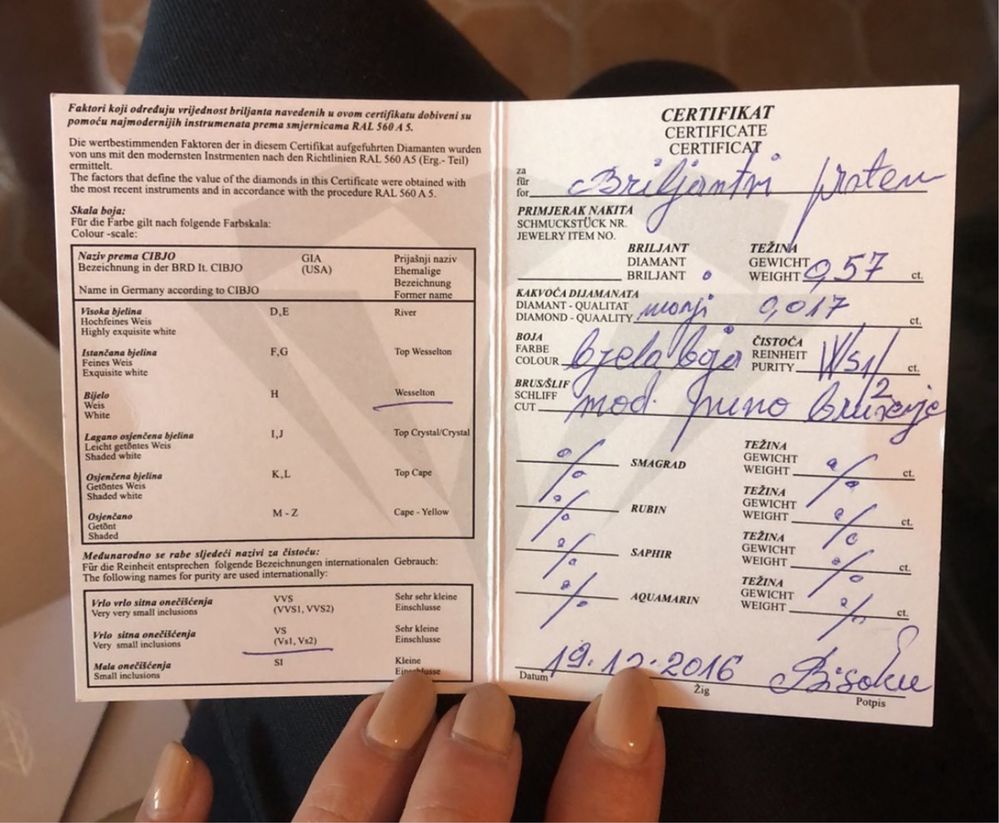 Faktori koji određuju vrijednost briljanta navedenih u ovom certifikatu dobiveni su
pomoću najmodernijih instrumenata prema smjernicama RAL 560 A 5.
Die wertbestimmenden Faktoren der in diesem Certifikat aufgefuhrten Diamanten wurden
von uns mit den modernsten Instrmenten nach den Richtlinien RAL 560 A5 (Erg.- Teil)
ermittelt.
The factors that define the value of the diamonds in this Certificate were obtained with
the most recent instruments and in accordance with the procedure RAL 560 A 5.
Skala boja:
Für die Farbe gilt nach folgende Farbskala:
Colour -scale:
Naziv prema CIBJO GIA Prijašnji naziv
Bezeichnung in der BRD It. CIBJO (USA) Ehemalige
Bezeichnung
Name in Germany according to CIBJO Former name
Visoka bjelina D,E River
Hochfeines Weis
Highly exquisite white
Istančana bjelina F,G Top Wesselton
Feines Weis
Exquisite white
Bijelo H Wesselton
Weis
White
Lagano osjenčena bjelina I,J Top Crystal/Crystal
Leicht getöntes Weis
Shaded white
Osjenčena bjelina K,L Top Cape
Getöntes Weis
Shaded white
Osjenčano M - Z Cape - Yellow
Getönt
Shaded
Međunarodno se rabe sljedeći nazivi za čistoću:
Für die Reinheit entsprechen folgende Bezeichnungen internationalen Gebrauch:
The following names for purity are used internationally:
Vrlo vrlo sitna onečišćenja VVS Sehr sehr kleine
Very very small inclusions (VVS1, VVS2) Einschlusse
Vrlo sitna onečišćenja VS Sehr kleine
Very small inclusions (Vs1, Vs2) Einschlusse
Mala onečišćenja SI Kleine
Small inclusions
CERTIFIKAT
CERTIFICATE
CERTIFICAT
za
für
for Briljantni prsten
PRIMJERAK NAKITA
SCHMUCKSTÜCK NR.
JEWELRY ITEM NO.
BRILJANT TEŽINA
DIAMANT GEWICHT
BRILJANT WEIGHT 0,57 ct.
KAKVOĆA DIJAMANATA
DIAMANT - QUALITAT
DIAMOND - QUAALITY manji 0,017 ct.
BOJA ČISTOĆA
FARBE REINHEIT
COLOUR bjela boja PURITY ct.
BRUS/ŠLIF
SCHLIFF
CUT mod. puno brušenje
TEŽINA
GEWICHT
SMAGRAD WEIGHT % ct.
TEŽINA
GEWICHT
RUBIN WEIGHT % ct.
TEŽINA
GEWICHT
SAPHIR WEIGHT % ct.
TEŽINA
GEWICHT
AQUAMARIN WEIGHT % ct.
Datum 19.12.2016
Žig
Potpis